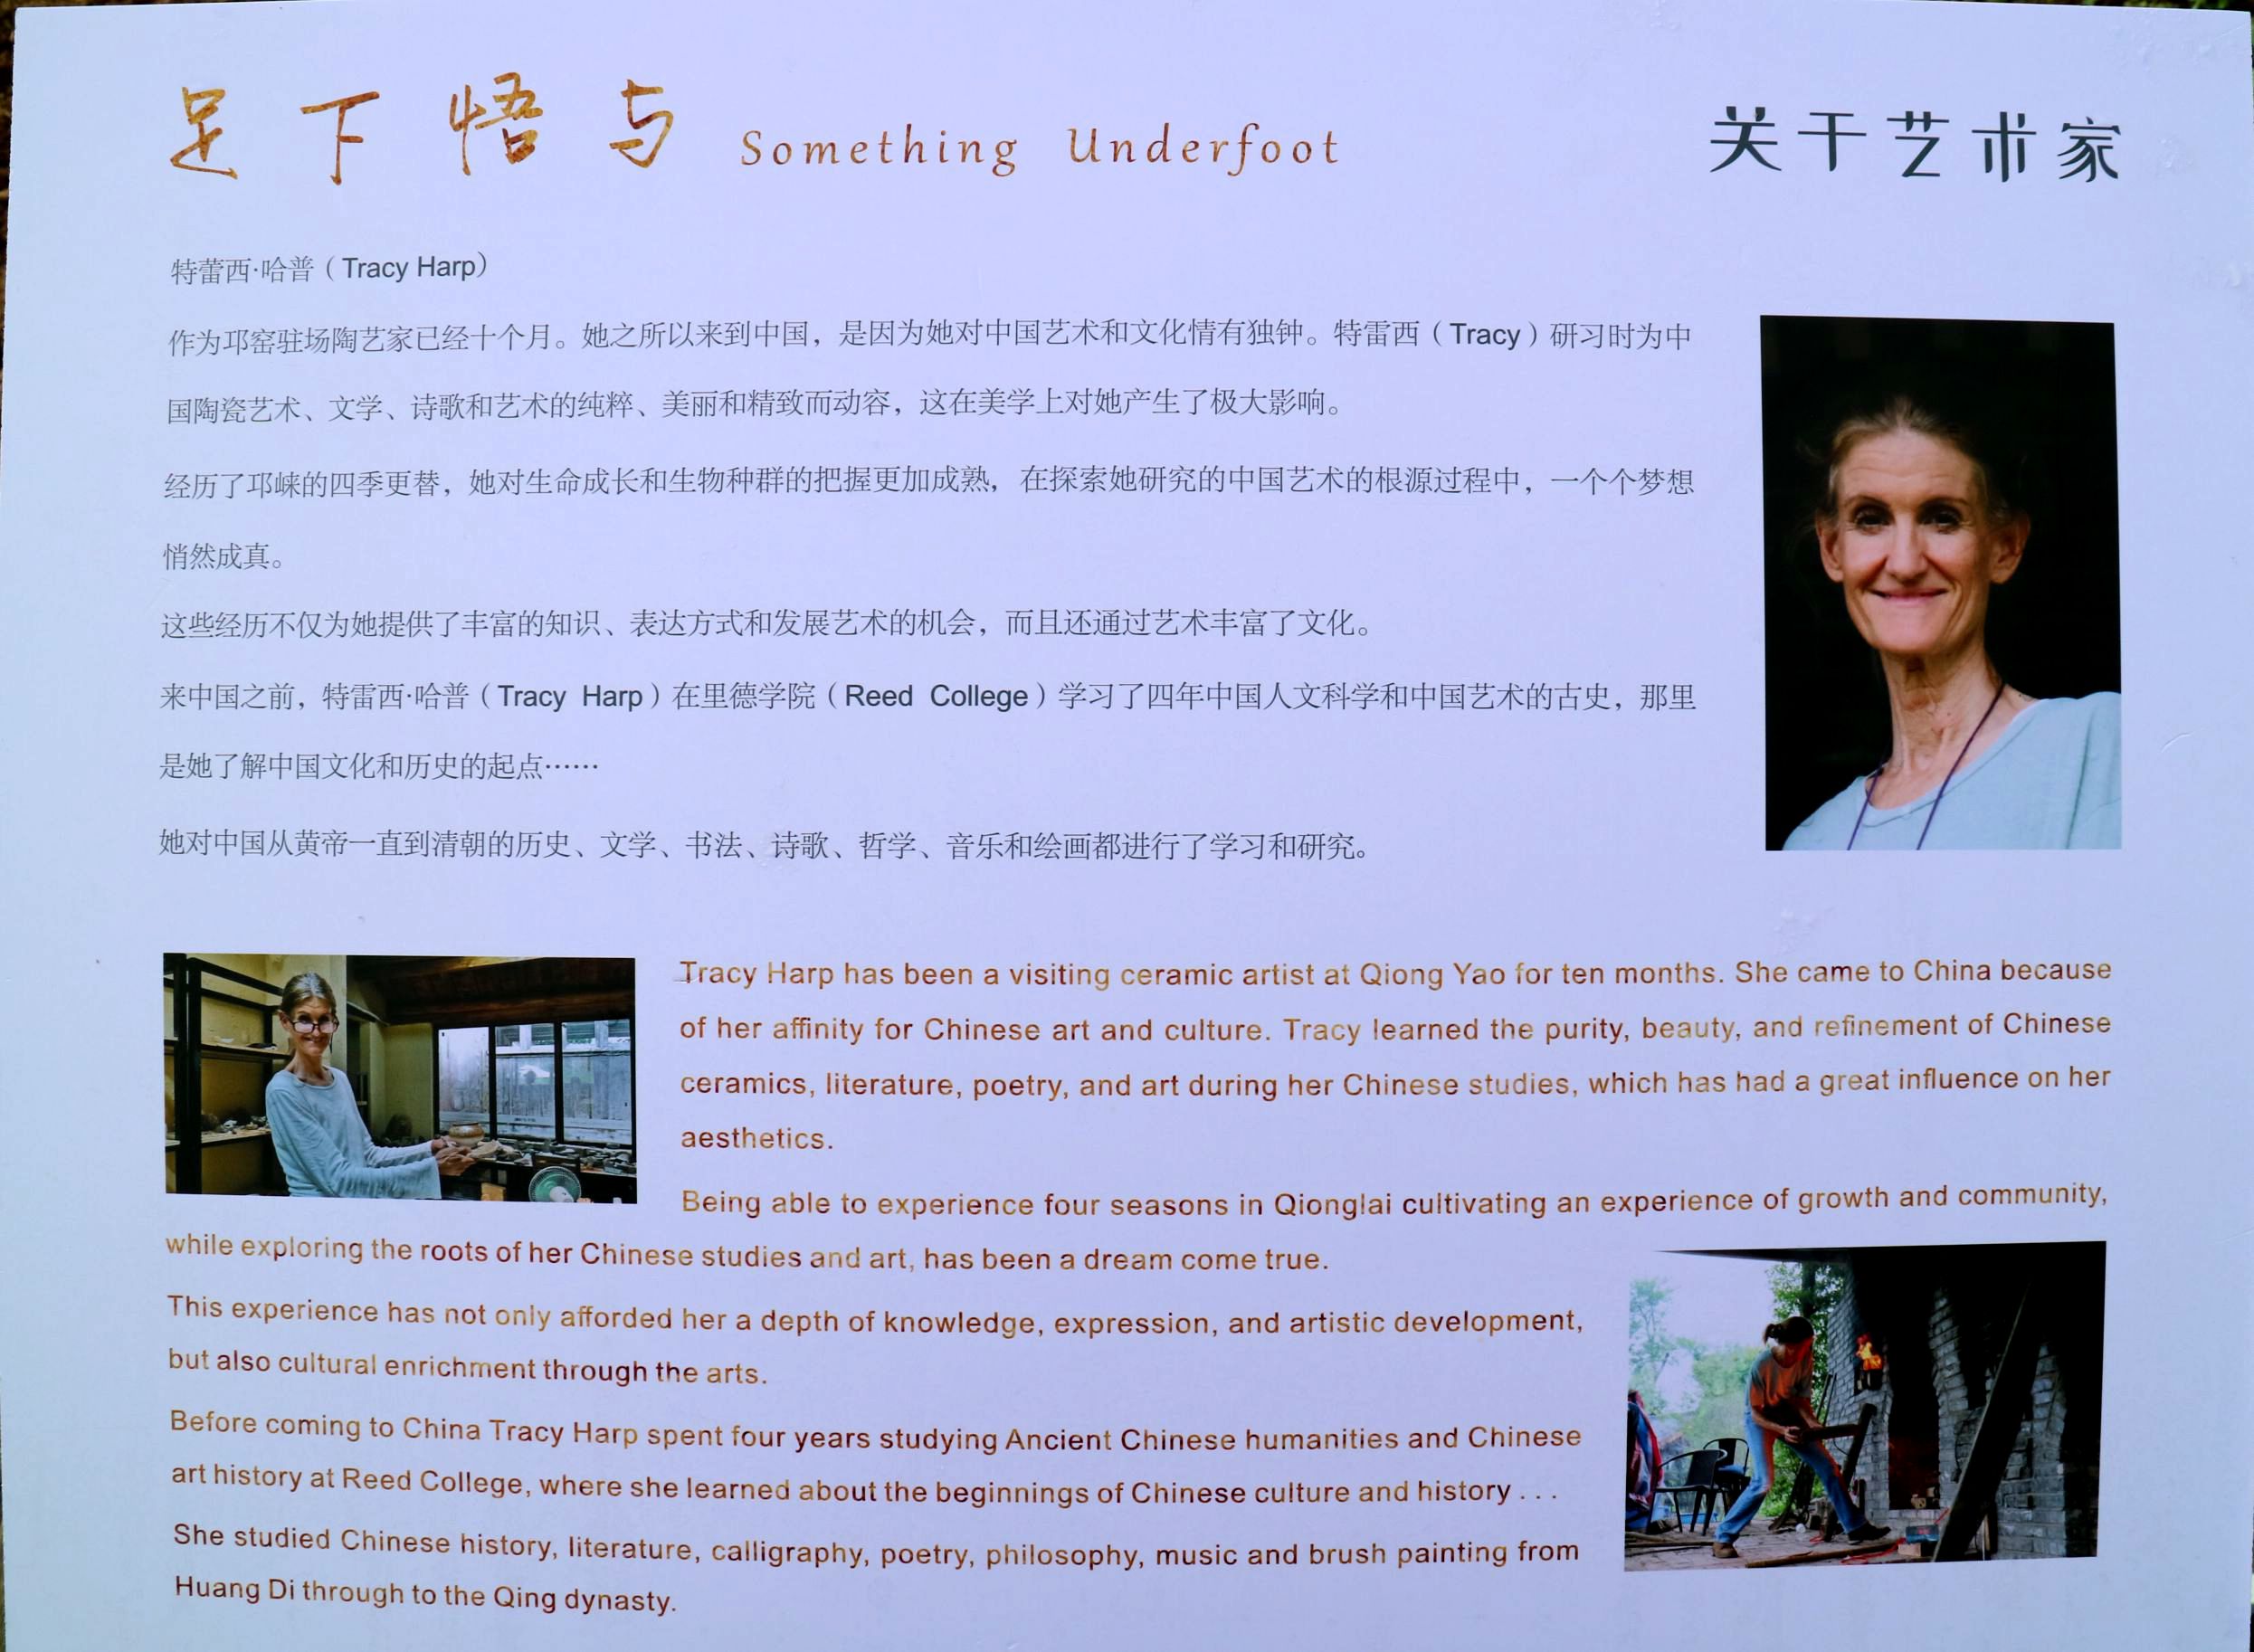 足下悟与 Something Underfoot
关于艺术家
特蕾西·哈普（Tracy Harp）
作为邛窑驻场陶艺家已经十个月。她之所以来到中国，是因为她对中国艺术和文化情有独钟。特雷西（Tracy）研习时为中
国陶瓷艺术、文学、诗歌和艺术的纯粹、美丽和精致而动容，这在美学上对她产生了极大影响。
经历了邛崃的四季更替，她对生命成长和生物种群的把握更加成熟，在探索她研究的中国艺术的根源过程中，一个个梦想
悄然成真。
这些经历不仅为她提供了丰富的知识、表达方式和发展艺术的机会，而且还通过艺术丰富了文化。
来中国之前，特雷西·哈普（Tracy Harp）在里德学院（Reed College）学习了四年中国人文科学和中国艺术的古史，那里
是她了解中国文化和历史的起点……
她对中国从黄帝一直到清朝的历史、文学、书法、诗歌、哲学、音乐和绘画都进行了学习和研究。
Tracy Harp has been a visiting ceramic artist at Qiong Yao for ten months. She came to China because
of her affinity for Chinese art and culture. Tracy learned the purity, beauty, and refinement of Chinese
ceramics, literature, poetry, and art during her Chinese studies, which has had a great influence on her
aesthetics.
Being able to experience four seasons in Qionglai cultivating an experience of growth and community,
while exploring the roots of her Chinese studies and art, has been a dream come true.
This experience has not only afforded her a depth of knowledge, expression, and artistic development,
but also cultural enrichment through the arts.
Before coming to China Tracy Harp spent four years studying Ancient Chinese humanities and Chinese
art history at Reed College, where she learned about the beginnings of Chinese culture and history . . .
She studied Chinese history, literature, calligraphy, poetry, philosophy, music and brush painting from
Huang Di through to the Qing dynasty.